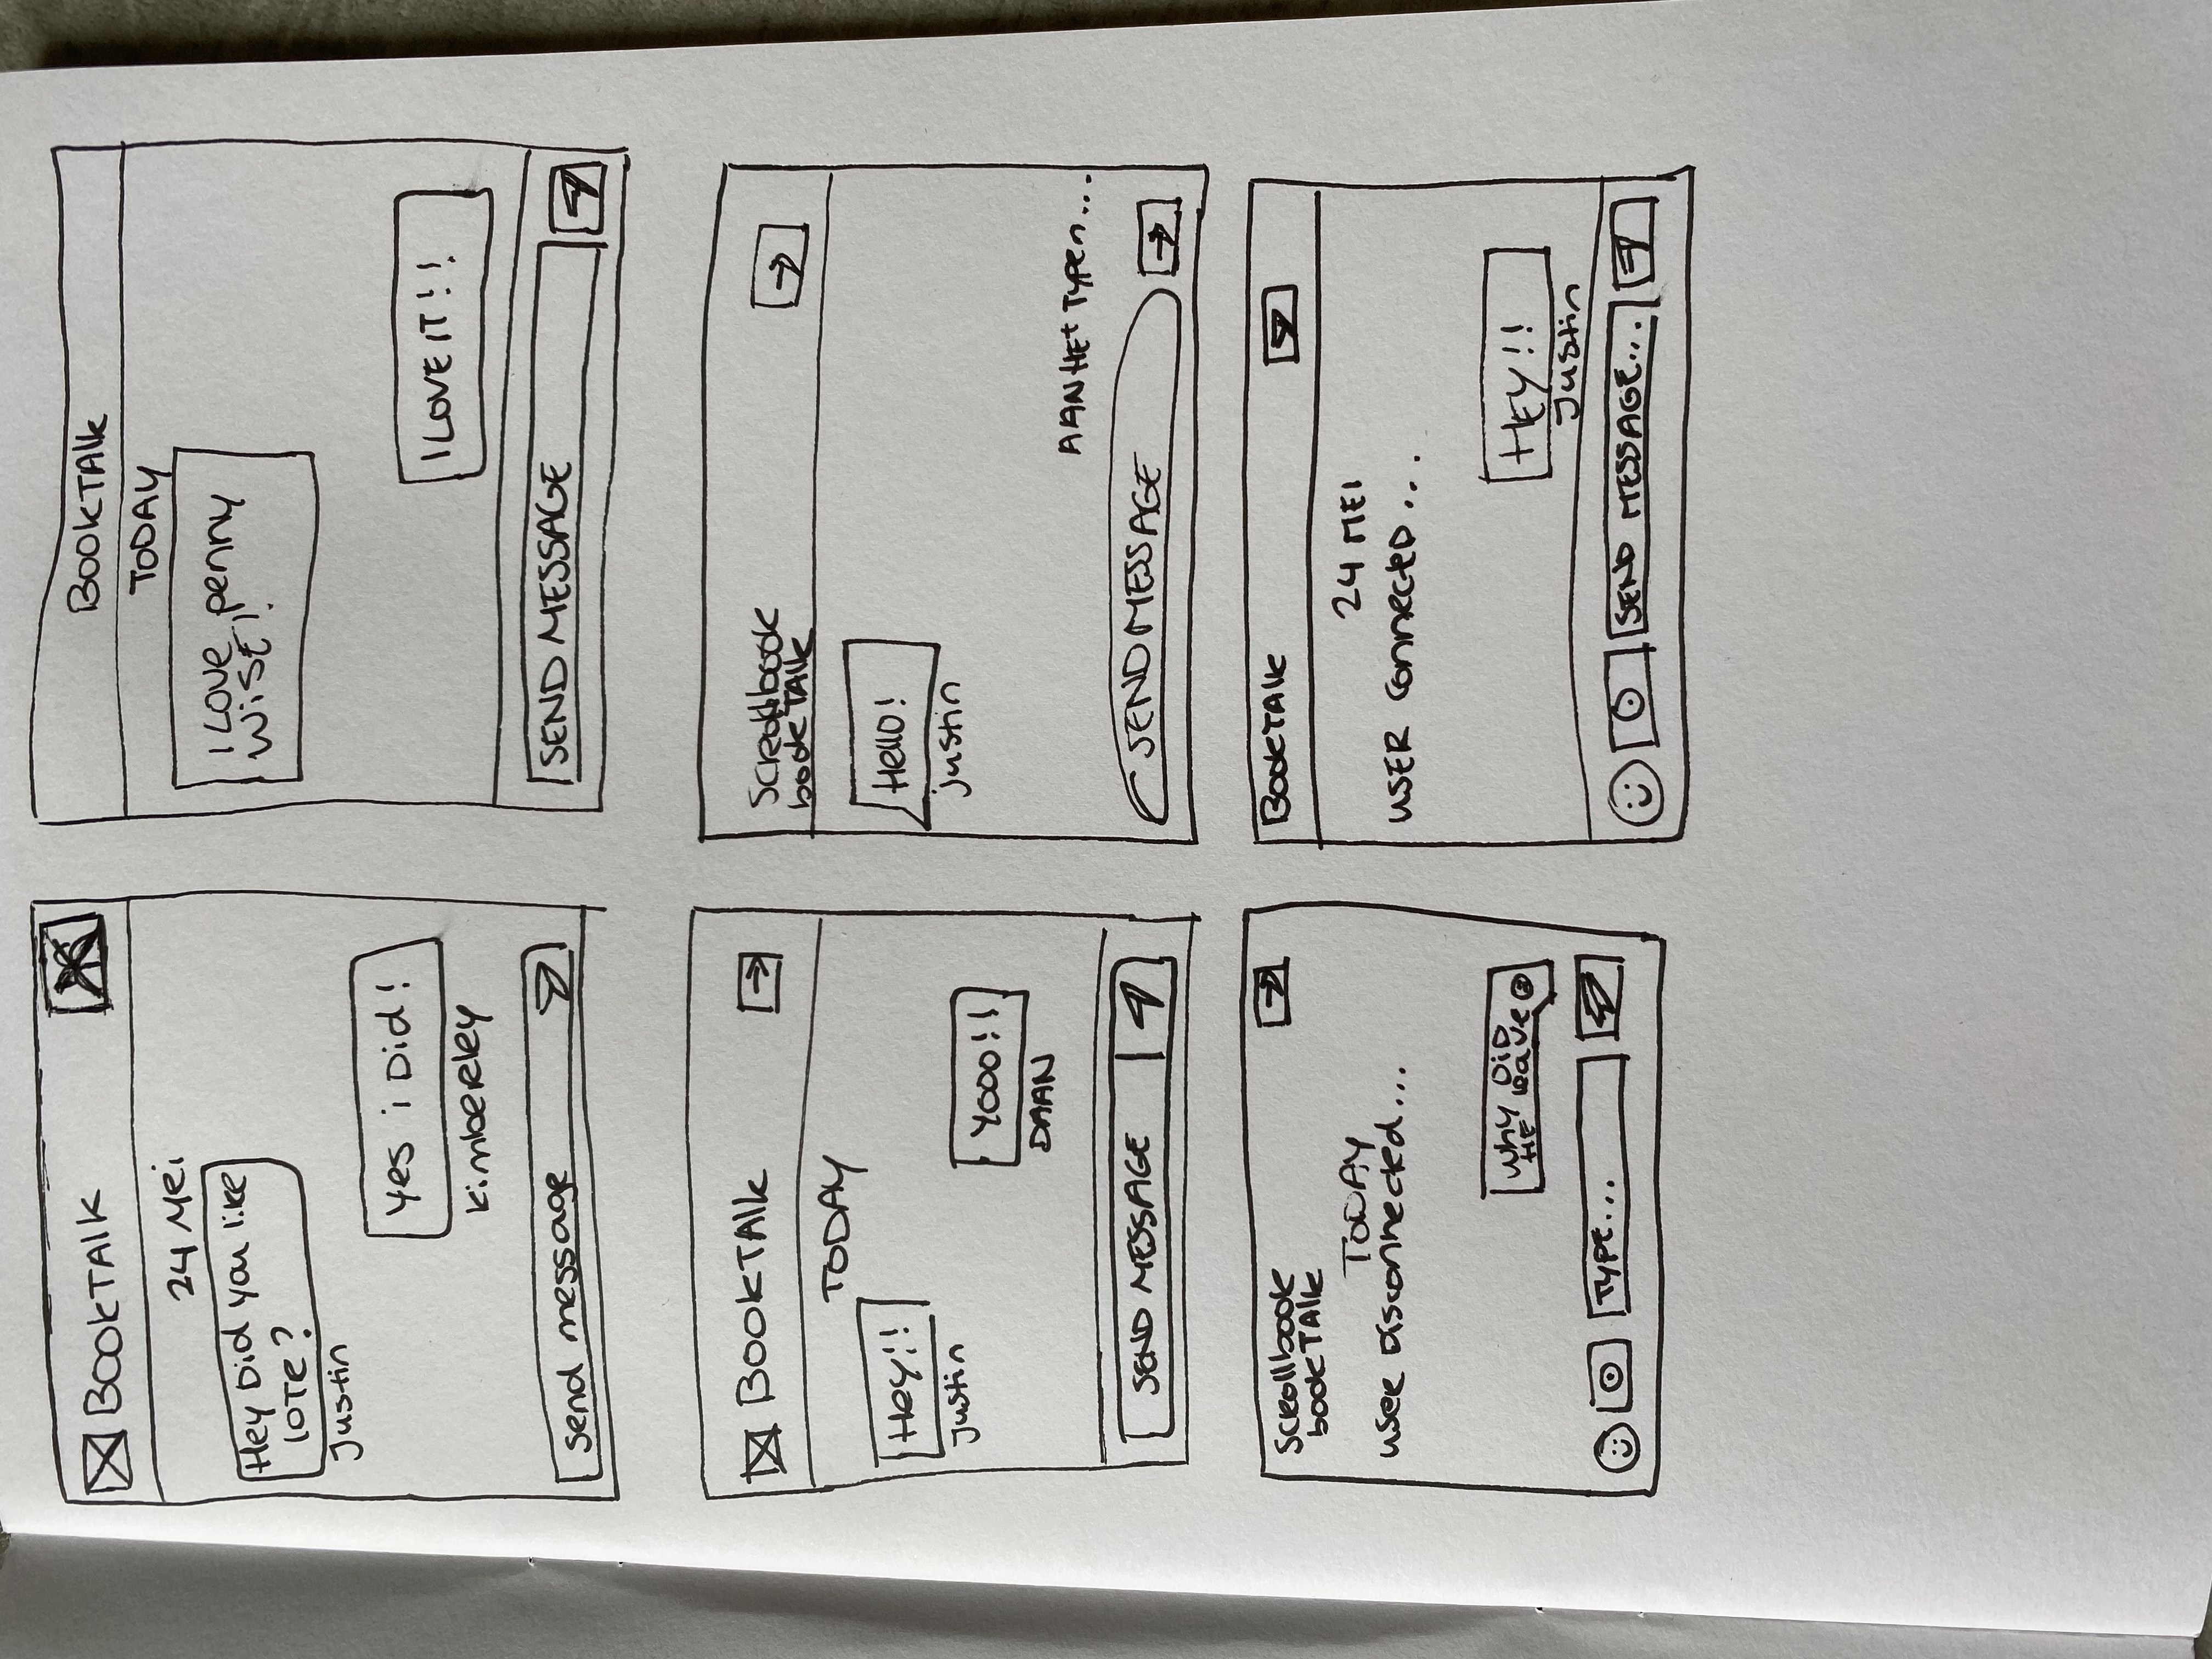 BOOKTALK
24 Mei
Hey Did you like
lOTR?
Justin
Yes i Did!
kimBeRley
Send message
BOOKTALK
TODAY
I LOVE penny
WiSE!
I LOVE IT!!
SEND MESSAGE
BOOKTALK
TODAY
Hey!!
Justin
YOOO!!
DAAN
SEND MESSAGE
Scrollbook
bookTALK
Hello!
justin
AAN HEt Typen...
SEND MESSAGE
Scrollbook
bookTALK
TODAY
USER Disconnected...
Why DiD
HE leave
TYPE...
BOOKTALK
24 MEI
USER CONNECTED...
HEY!!
Justin
SEND MESSAGE...